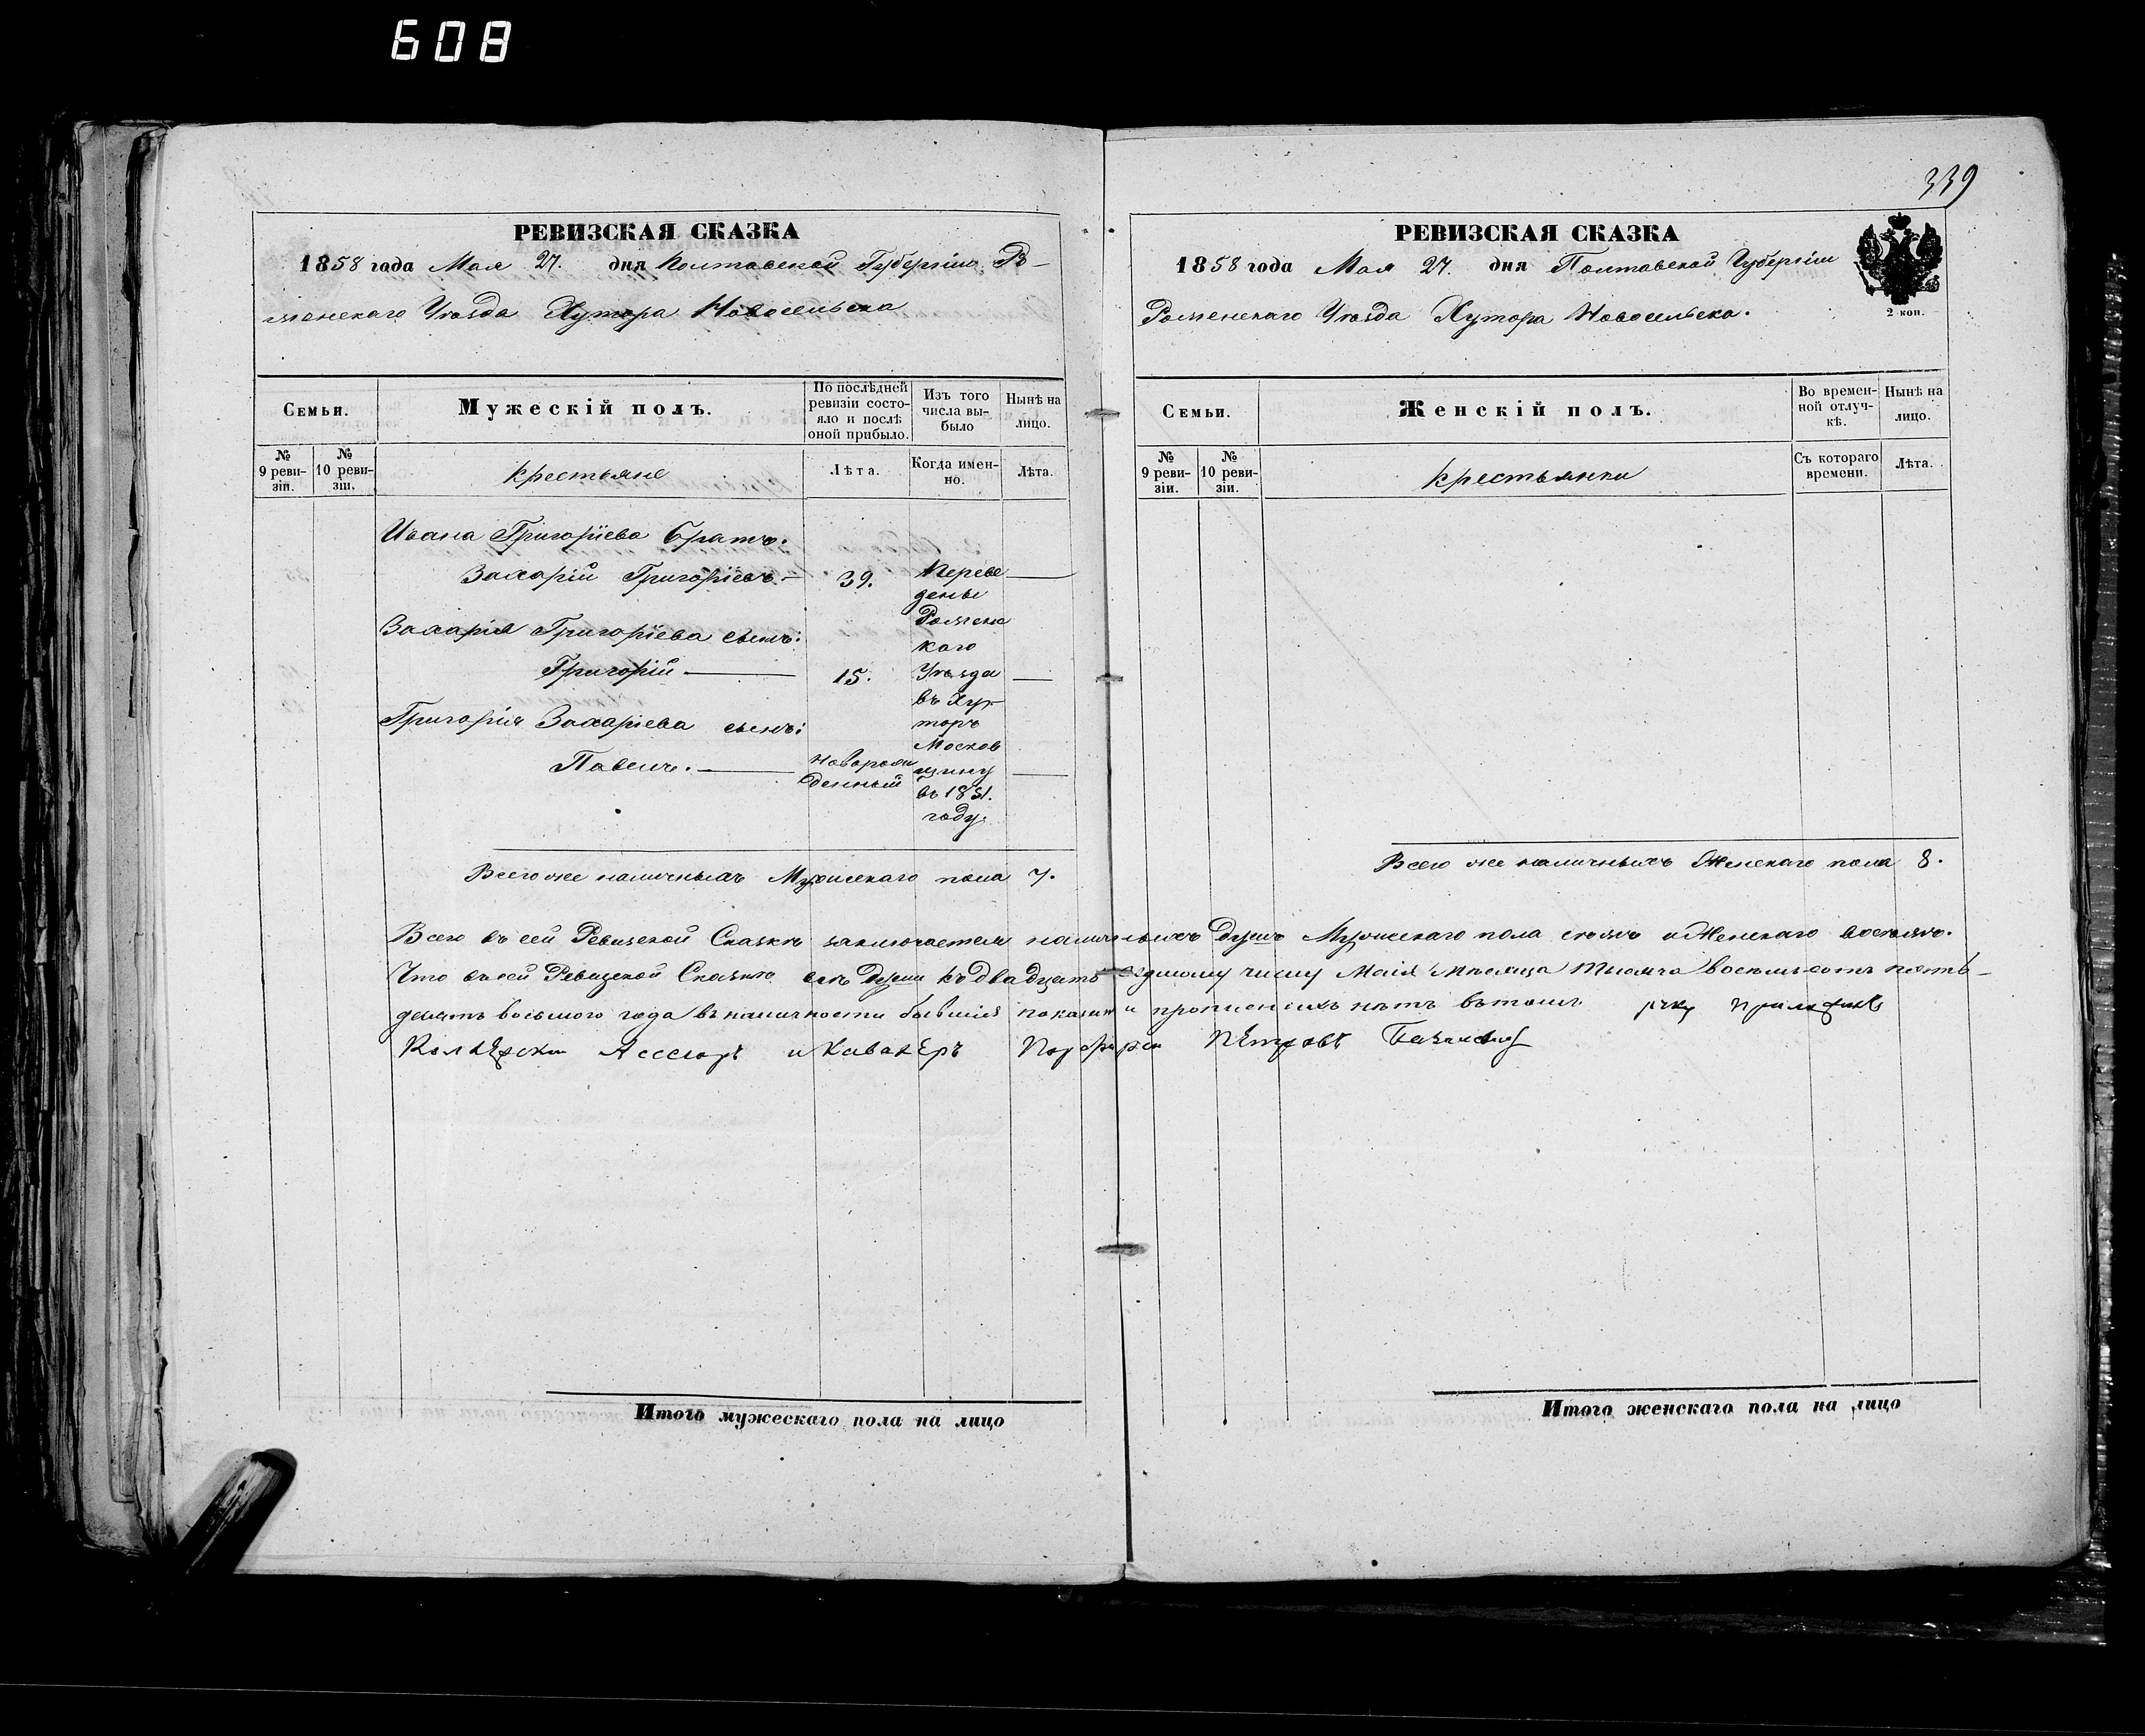 608
339
РЕВИЗСКАЯ СКАЗКА
1858 года Мая 27. дня Полтавской Губерніи Ро-
менскаго Уѣзда Хутора Новосельска
Семьи.
Мужескій полъ.
По послѣдней ревизіи состо-
яло и послѣ оной прибыло.
Изъ того числа вы-
было
Нынѣ на лицо.
№ 9 реви-
зіи.
№ 10 реви-
зіи.
Крестьяне
Лѣта.
Когда имен-
но.
Лѣта.
Ивана Григоріева братъ.
Захарій Григоріевъ — 39. Переве —
дены
Роменс
Захарія Григоріева сынъ:
каго
Григорій — 15. Уѣзда —
въ Ху-
Григорія Захаріева сынъ:
торъ
Москов
Павелъ. — Новорож
денный
щину —
въ 1851.
году.
Всего же наличныхъ Мужескаго пола 7.
РЕВИЗСКАЯ СКАЗКА
1858 года Мая 27. дня Полтавской Губерніи
Роменскаго Уѣзда Хутора Новосельска.
2 коп.
Семьи.
Женскій полъ.
Во времен-
ной отлуч-
кѣ.
Нынѣ на лицо.
№ 9 реви-
зіи.
№ 10 реви-
зіи.
Крестьянки
Съ котораго времени.
Лѣта.
Всего же наличныхъ Женскаго пола 8.
Всего въ сей Ревизской Сказкѣ заключается наличныхъ Душъ Мужескаго пола семь и Женскаго восемь.
Что въ сей Ревизской Сказкѣ всѣ Души къ двадцать седмому числу Маія мѣсяца тысяча восемьсотъ пять-
десятъ восьмого года въ наличности бывшія показаны и прописныхъ нѣтъ въ томъ руку приложилъ
Колежскій Асесоръ и Кавалеръ Порфирій Петровъ
Итого мужескаго пола на лицо
Итого женскаго пола на лицо